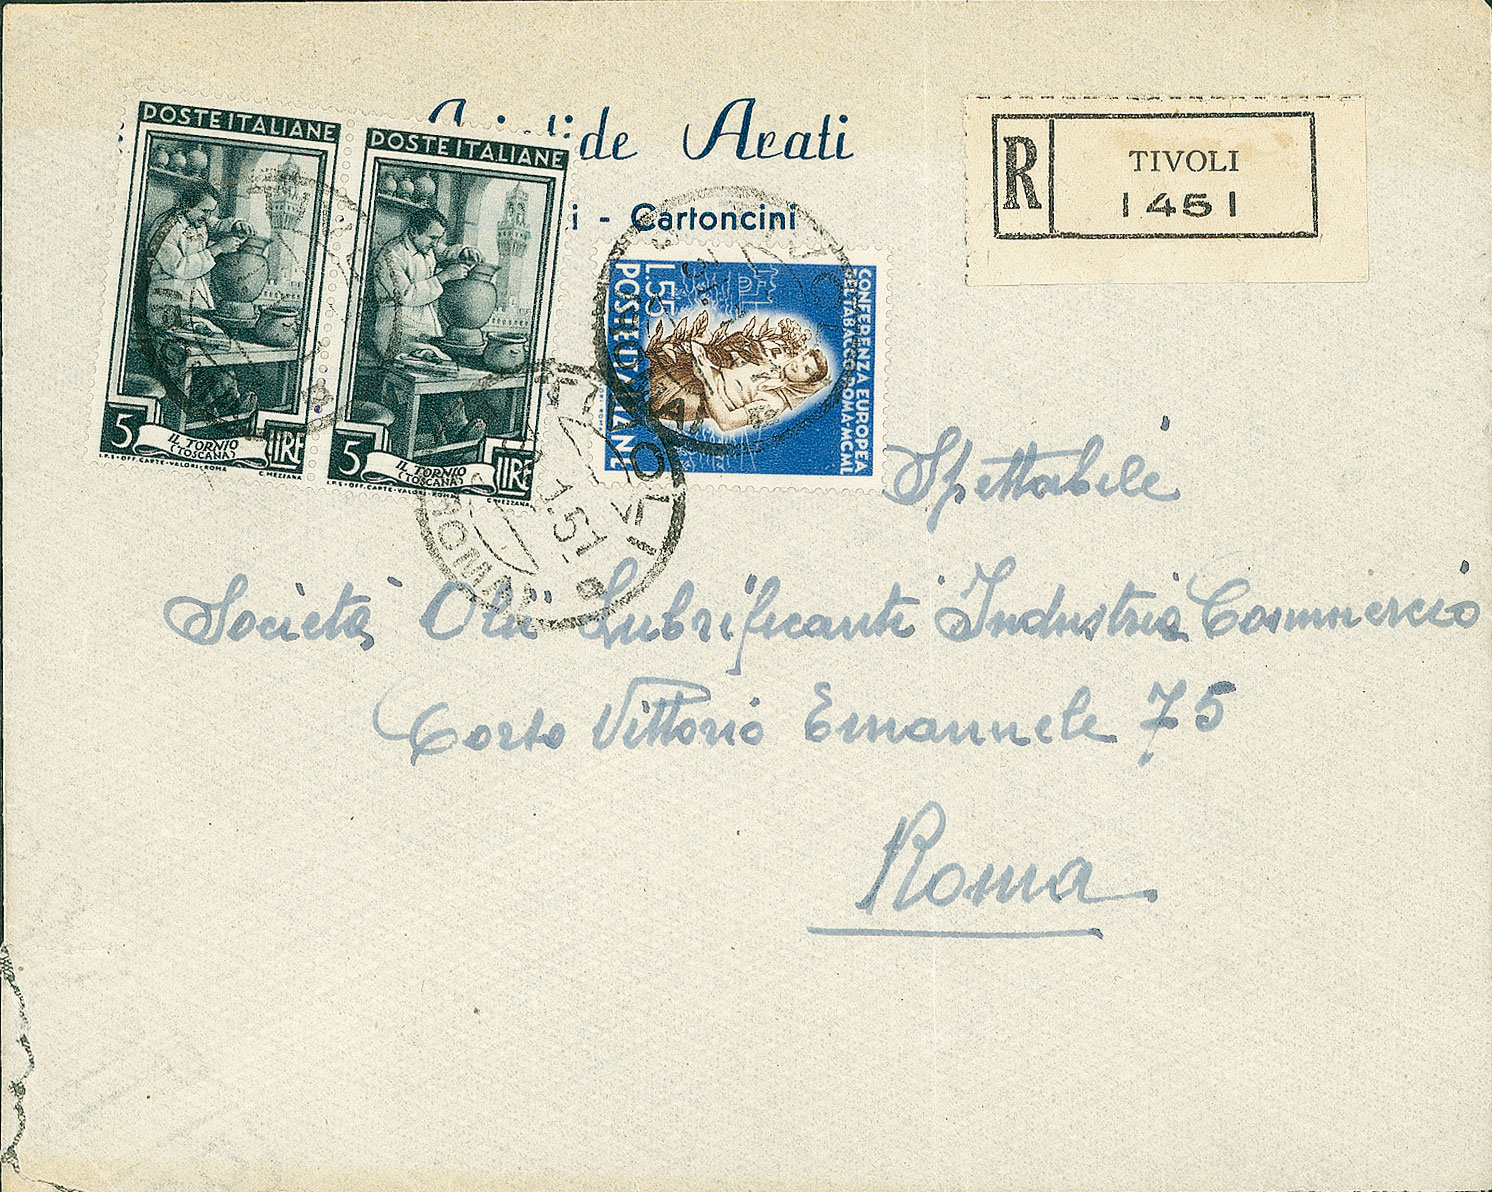 de Arati
i - Cartoncini
R
TIVOLI
1451
POSTE ITALIANE
5 LIRE
IL TORNIO
(TOSCANA)
I.P.S-OFF.CARTE-VALORI-ROMA C.MEZZANA
POSTE ITALIANE
5 LIRE
IL TORNIO
(TOSCANA)
I.P.S-OFF.CARTE-VALORI-ROMA C.MEZZANA
CONFERENZA EUROPEA
DEL TABACCO·ROMA·MCML
L.55
POSTE ITALIANE
TIVOLI
1.51
ROMA
Spettabile
Società Olii Lubrificanti Industria Commercio
Corso Vittorio Emanuele 75
Roma